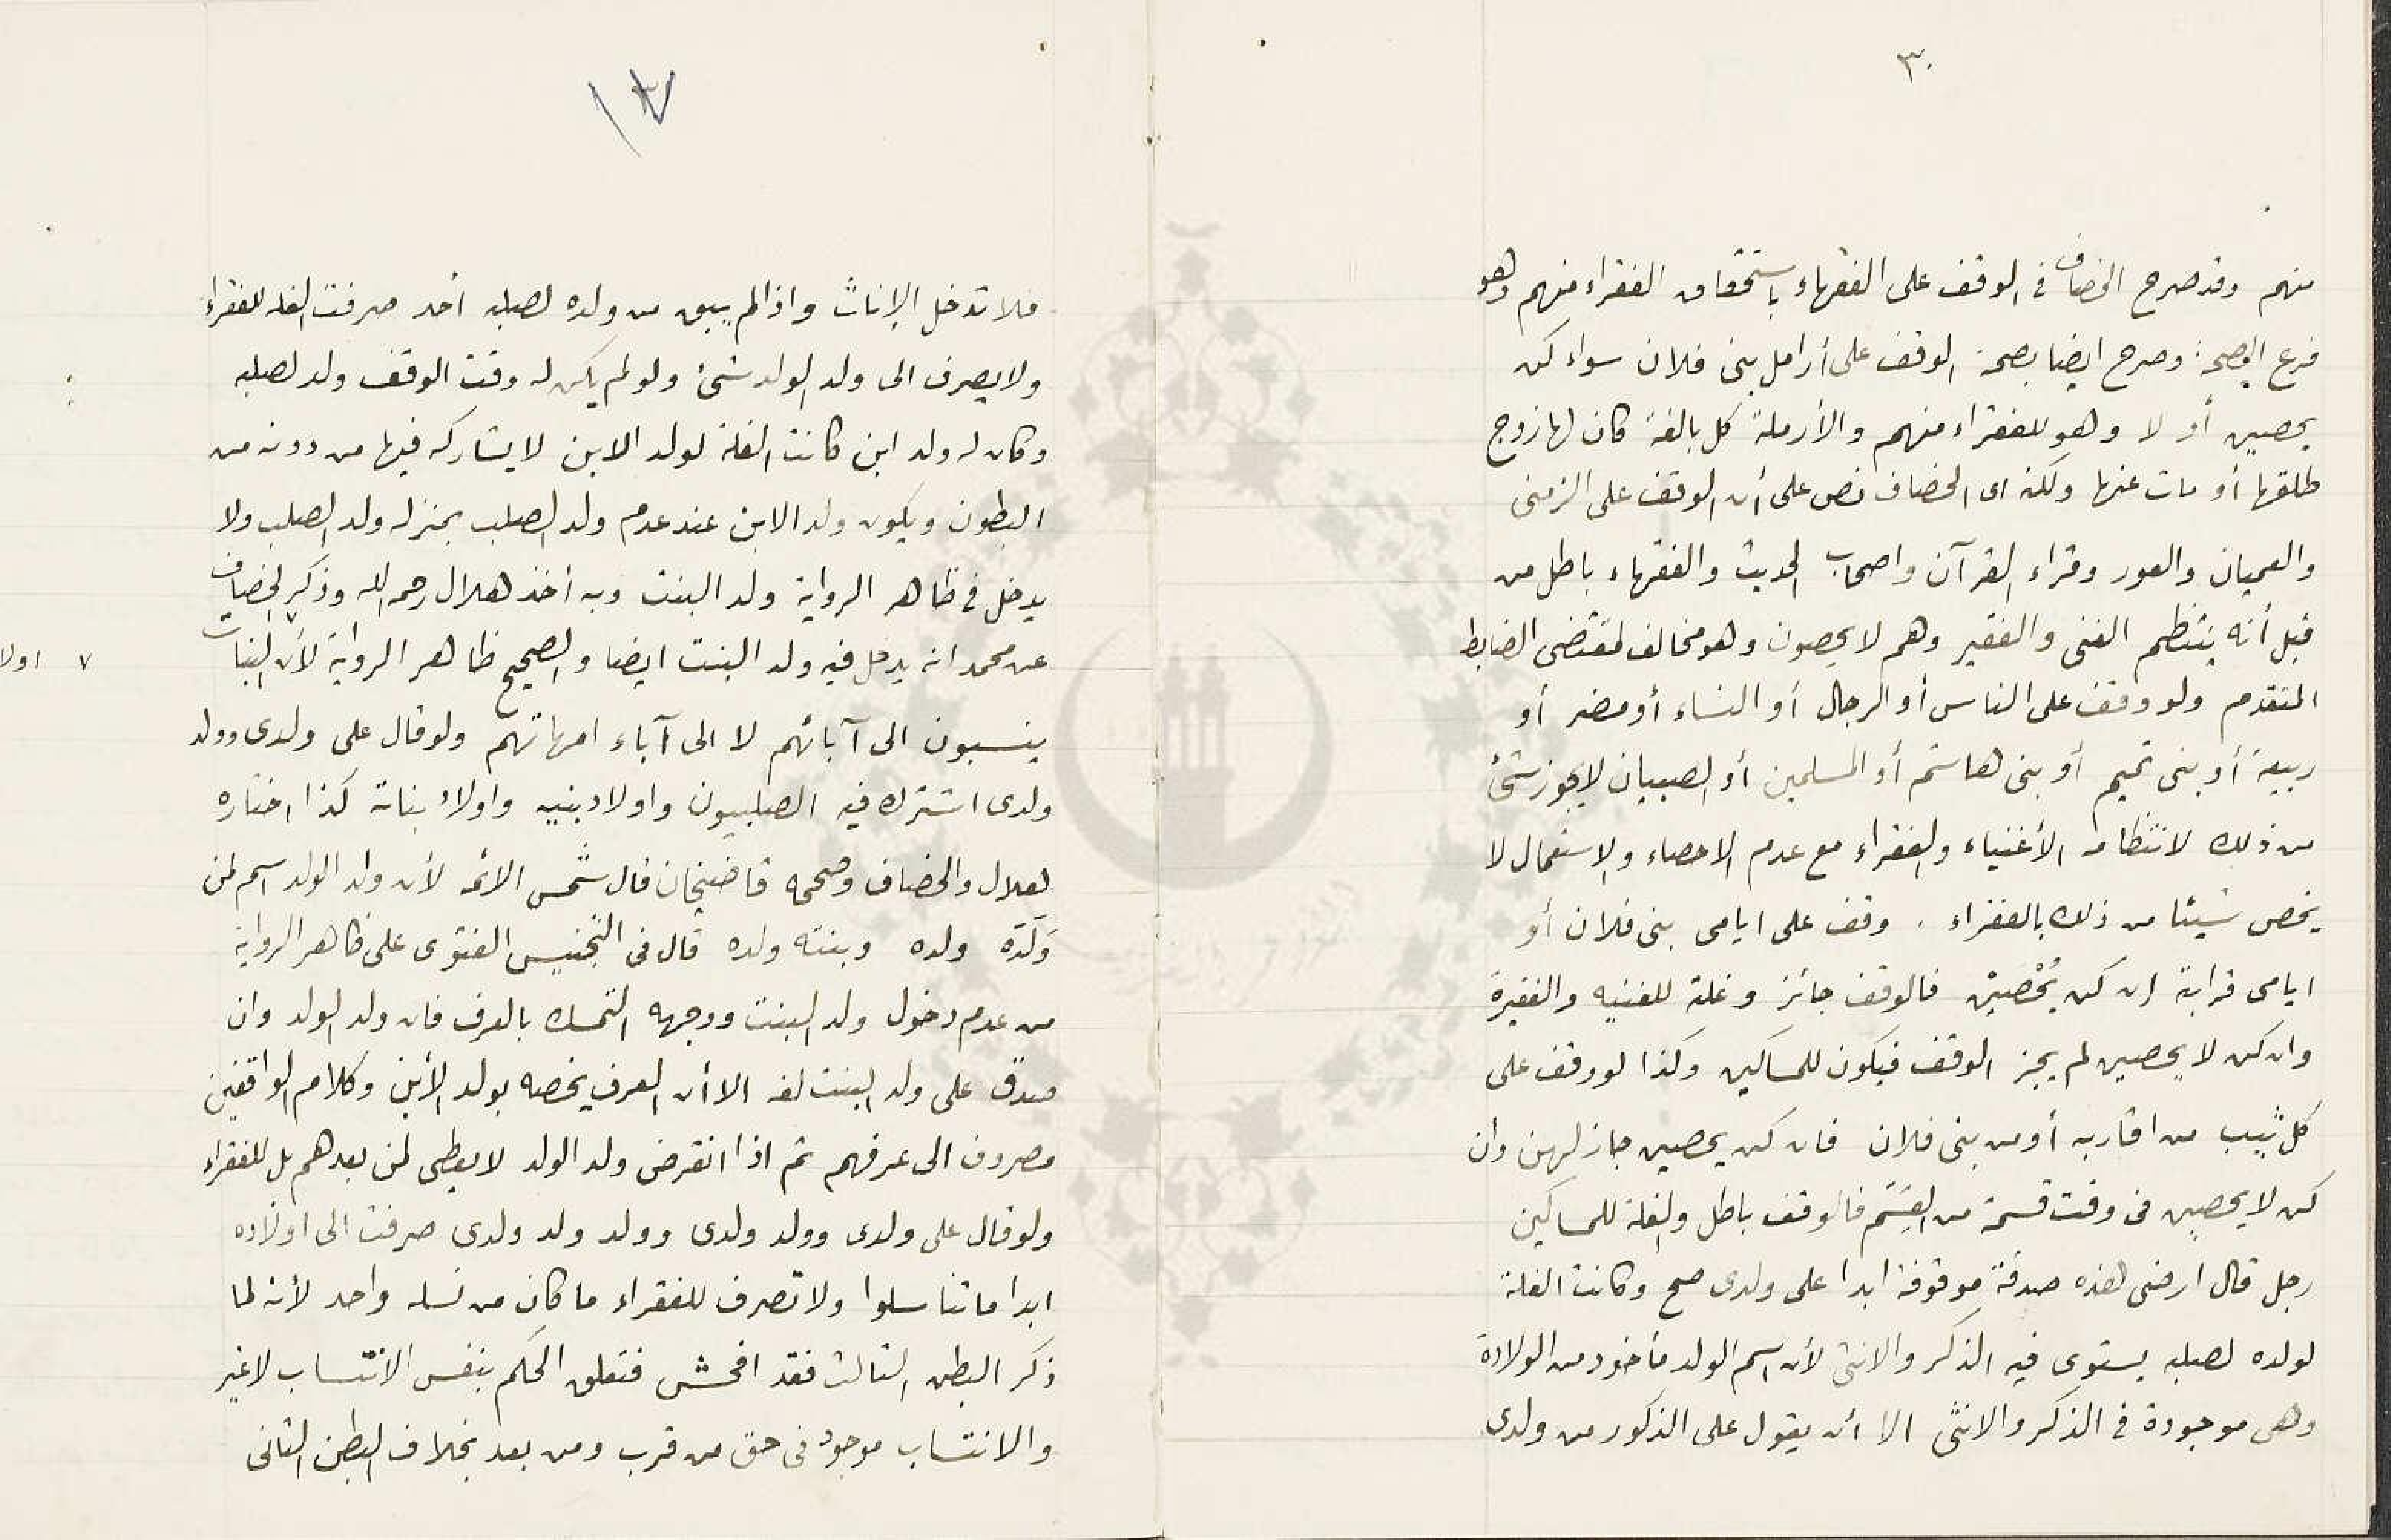 ٣٠
منهم وقد صرح الخصاف فى الوقف على الفقهاء باستحقاق الفقراء منهم وهو
فرع الصحة وصرح ايضا بصحة الوقف على أرامل بنى فلان سواء كن
يحصين أو لا وهو للفقراء منهم والأرملة كل بالغة كان لها زوج
طلقها أو مات عنها ولكنه اى الخصاف نص على أن الوقف على الزمنى
والعميان والعور وقراء القرآن واصحاب الحديث والفقهاء باطل من
قبل أنه ينتظم الغنى والفقير وهم لا يحصون وهو مخالف لمقتضى الضابط
المتقدم ولو وقف على الناس أو الرجال أو النساء أو مضر أو
ربيعة أو بنى تميم أو بنى هاشم أو المسلمين أو الصبيان لا يجوز شئ
من ذلك لانتظامه الأغنياء والفقراء مع عدم الاحصاء والاستعمال لا
يخص شيئا من ذلك بالفقراء . وقف على ايامى بنى فلان أو
ايامى قرابة ان كن يُحْصَيْن فالوقف جائز وغلته للغنيه والفقيرة
وان كن لا يحصين لم يجز الوقف فيكون للمساكين وكذا لو وقف على
كل ثيب من اقاربه أو من بنى فلان فان كن يحصين جاز لهن وان
كن لا يحصين فى وقت قسمة من القِسَم فالوقف باطل والغلة للمساكين
رجل قال ارضى هذه صدقة موقوفة ابدا على ولدى صح وكانت الغلة
لولده لصلبه يستوى فيه الذكر والانثى لأن اسم الولد مأخوذ من الولادة
وهى موجودة فى الذكر والانثى الا أن يقول على الذكور من ولدى
فلا تدخل الإناث واذا لم يبق من ولده لصلبه أحد صرفت الغلة للفقراء
ولا يصرف الى ولد الولد شئ ولو لم يكن له وقت الوقف ولد لصلبه
وكان له ولد ابن كانت الغلة لولد الابن لا يشاركه فيها من دونه من
البطون ويكون ولد الابن عند عدم ولد الصلب بمنزلة ولد الصلب ولا
يدخل فى ظاهر الرواية ولد البنت وبه أخذ هلال رحمه الله وذكر الخصاف
عن محمد انه يدخل فيه ولد البنت ايضا والصحيح ظاهر الرواية لأن ٧ البنات
٧ اولا
ينسبون الى آبائهم لا الى آباء امهاتهم ولو قال على ولدى وولد
ولدى اشترك فيه الصلبيون واولاد بنيه واولاد بناته كذا اختاره
هلال والخصاف وصححه قاضيخان قال شمس الائمه لأن ولد الولد اسم لمن
وَلَدَه ولده وبنته ولده قال فى التجنيس الفتوى على ظاهر الرواية
من عدم دخول ولد البنت ووجهه التمسك بالعرف فان ولد الولد وان
صدق على ولد البنت لغة الا أن العرف يخصه بولد الأبن وكلام الواقفين
مصروف الى عرفهم ثم اذا انقرض ولد الولد لا يعطى لمن بعدهم بل للفقراء
ولو قال على ولدى وولد ولدى وولد ولد ولدى صرفت الى اولاده
ابدا ما تناسلوا ولا تصرف للفقراء ما كان من نسله واحد لأنه لما
ذكر البطن الثالث فقد افحش فتعلق الحكم بنفس الانتساب لا غير
والانتساب موجود فى حق من قرب ومن بعد بخلاف البطن الثانى